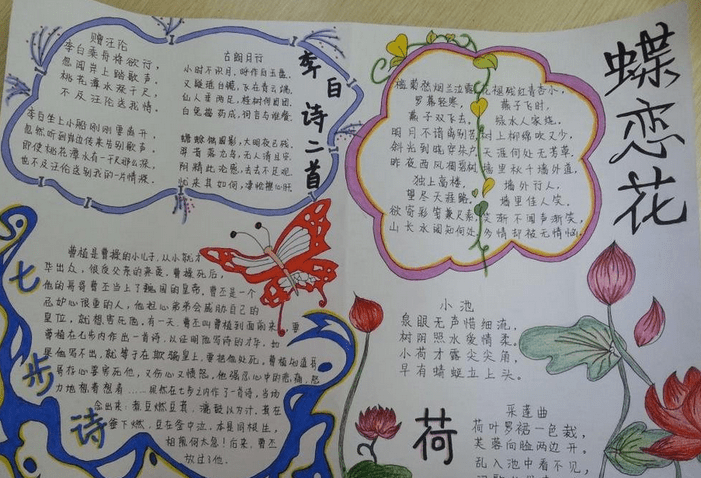 赠汪伦
李白乘舟将欲行,
忽闻岸上踏歌声。
桃花潭水深千尺,
不及汪伦送我情。
李白坐上小船刚刚要离开,
忽然听到岸边传来告别歌声。
即使桃花潭水有一千尺那么深,
也不及汪伦送别我的一片情深。
古朗月行
小时不识月,呼作白玉盘。
又疑瑶台镜,飞在青云端。
仙人垂两足,桂树何团团。
白兔捣药成,问言与谁餐。
蟾蜍蚀圆影,大明夜已残。
羿昔落九乌,天人清且安。
阴精此沦惑,去去不足观。
忧来其如何,凄怆摧心肝
李白诗二首
蝶恋花
槛菊愁烟兰泣露
罗幕轻寒,
燕子双飞去。
明月不谙离别苦
斜光到晓穿朱户
昨夜西风凋碧树
独上高楼。
望尽天涯路。
欲寄彩笺兼尺素
山长水阔知何处
花褪残红青杏小,
燕子飞时,
绿水人家绕。
枝上柳绵吹又少,
天涯何处无芳草。
墙里秋千墙外道,
墙外行人,
墙里佳人笑。
笑渐不闻声渐笑,
多情却被无情恼。
七步诗
曹植是曹操的小儿子,从小就才
华出众,很受父亲的疼爱。曹操死后,
他的哥哥曹丕当上了魏国的皇帝。曹丕是一个
忌妒心很重的人,他担心弟弟会威胁自己的
皇位,就想害死他。有一天,曹丕叫曹植到面前来,要
曹植在七步内作出一首诗,以证明他写诗的才华。如
果他写不出,就等于在欺骗皇上,要把他处死。曹植知道哥
哥存心要害死他,又伤心又愤怒。他强忍心中的悲痛,努
力地想着想着……果然在七步之内作了一首诗,当场
念出来:煮豆燃豆萁,漉豉以为汁。萁在
釜下燃,豆在釜中泣。本是同根生,
相煎何太急!后来,曹丕
放过了他。
小池
泉眼无声惜细流,
树阴照水爱情柔。
小荷才露尖尖角,
早有蜻蜓立上头。
荷
采莲曲
荷叶罗裙一色裁,
芙蓉向脸两边开。
乱入池中看不见,